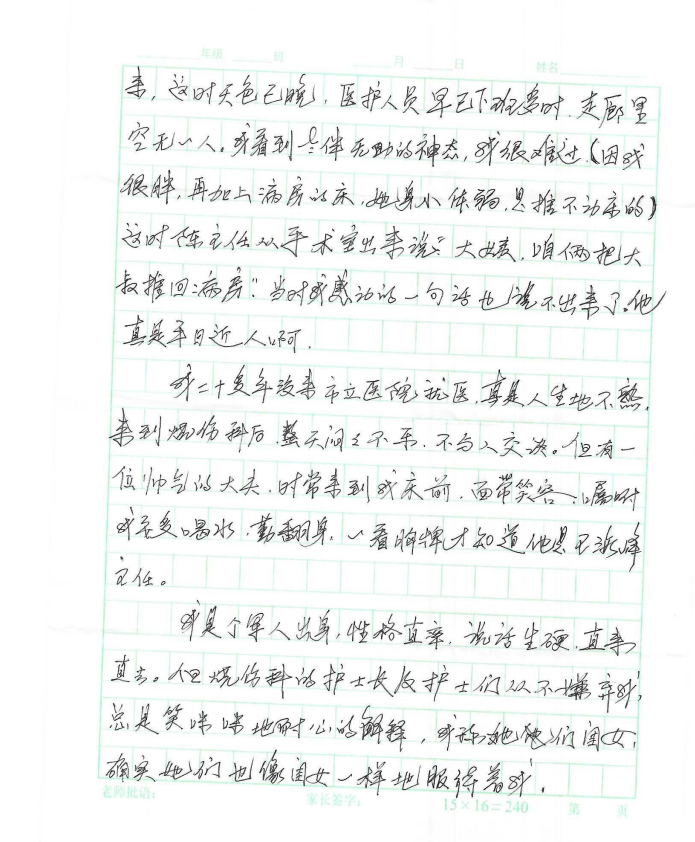 年级 班 月 日 姓名
来，这时天色已晚，医护人员早已下班多时，走廊里
空无一人。我看到老伴无助的神态，我很难过（因我
很胖，再加上病房的床，她身小体弱，是推不动床的）
这时陈主任从手术室出来说："大姨，咱俩把大
叔推回病房"。当时我感动的一句话也说不出来了。他
真是平日近人啊。
我二十多年没来市立医院就医，真是人生地不熟，
来到烧伤科后，整天闷闷不乐，不与人交谈。但有一
位帅气的大夫，时常来到我床前，面带笑容，嘱咐
我要多喝水，勤翻身，一看胸牌才知道他是王 峰
主任。
我是个军人出身，性格直率，说话生硬，直来
直去。但烧伤科的护士长及护士们从不嫌弃我，
总是笑咪咪地耐心的解释，我称她们闺女，
确实她们也像闺女一样地服 着我。
老师批语： 家长签字： 15×16=240 第 页